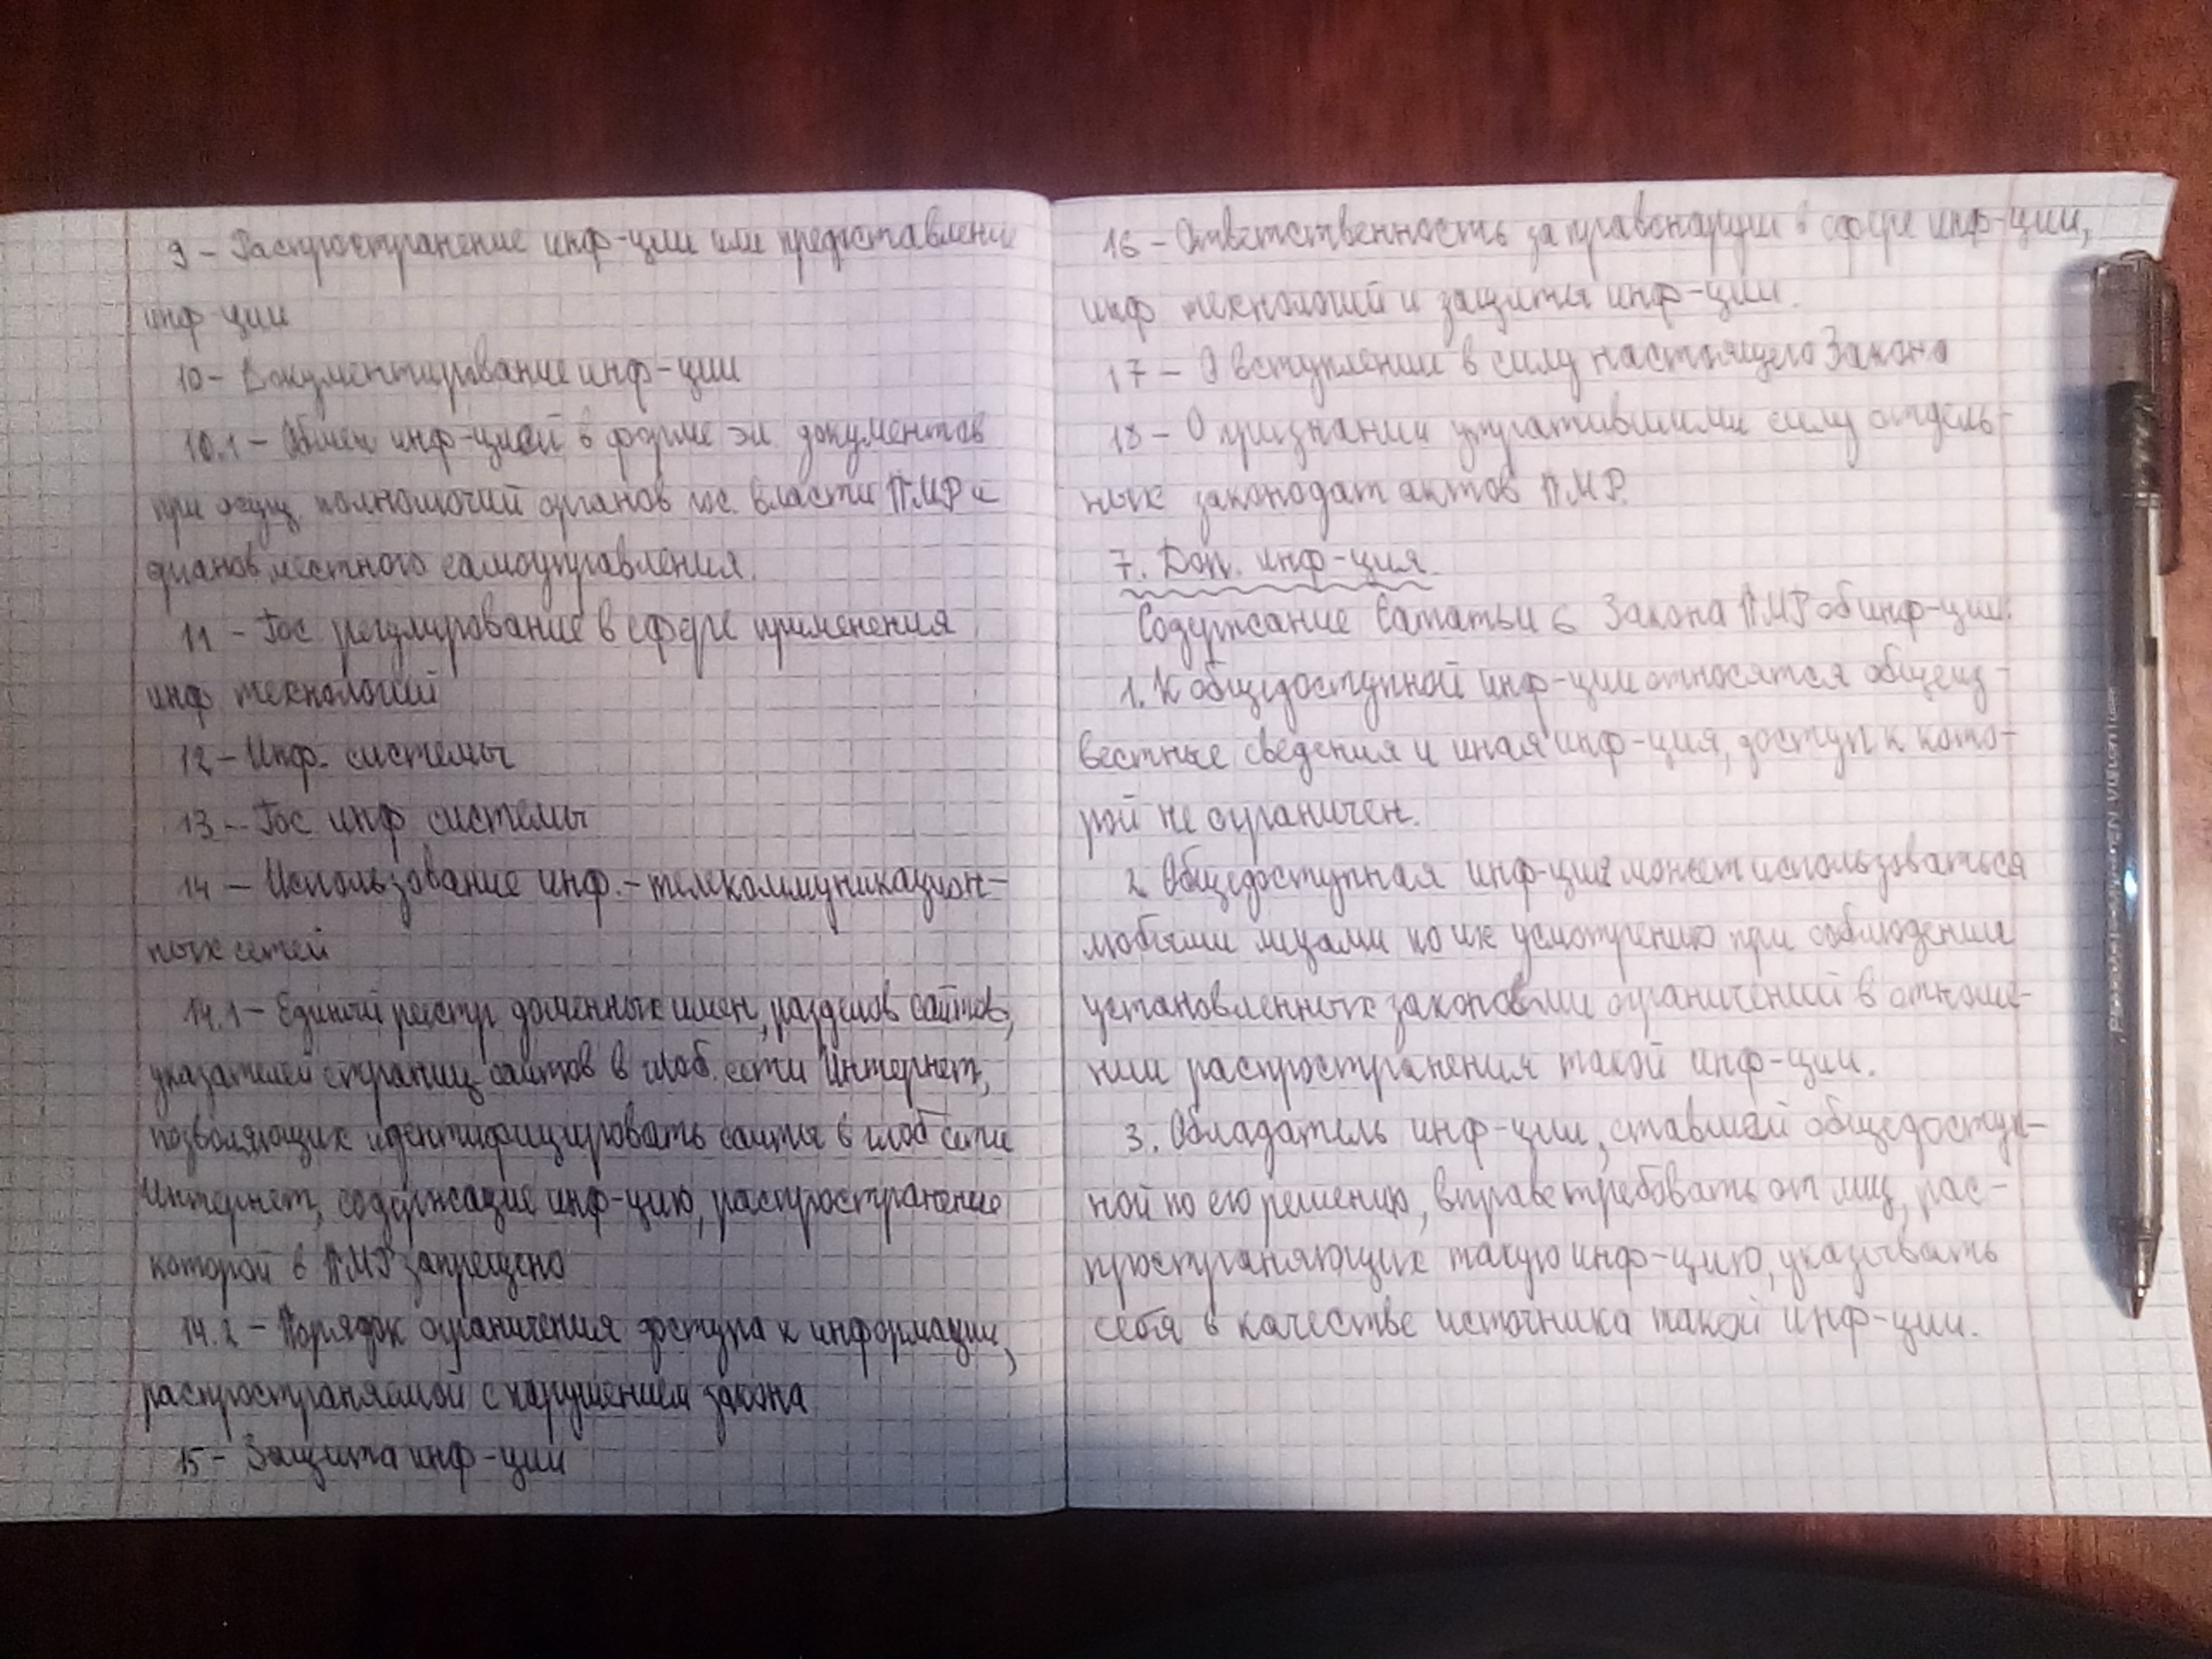 9 - Распространение инф-ции или предоставление
инф-ции
10 - Документирование инф-ции
10.1 - Обмен инф-цией в форме эл. документов
при осущ. полномочий органов гос. власти ПМР и
органов местного самоуправления.
11 - Гос регулирование в сфере применения
инф технологий
12 - Инф. системы
13 - Гос инф системы
14 - Использование инф.-телекоммуникацион-
ных сетей
14.1 - Единый реестр доменных имен, разделов сайтов,
указателей страниц сайтов в глоб. сети Интернет,
позволяющих идентифицировать сайты в глоб сети
Интернет, содержащие инф-цию, распространение
которой в ПМР запрещено
14.2 - Порядок ограничения доступа к информации,
распространяемой с нарушением закона
15 - Защита инф-ции
16 - Ответственность за правонаруш в сфере инф-ции,
инф технологий и защиты инф-ции.
17 - О вступлении в силу настоящего Закона
18 - О признании утратившими силу отдель-
ных законодат актов ПМР.
7. Доп. инф-ция.
Содержание Статьи 6 Закона ПМР об инф-ции.
1. К общедоступной инф-ции относятся общеиз-
вестные сведения и иная инф-ция, доступ к кото-
рой не ограничен.
2 Общедоступная инф-ция может использоваться
любыми лицами по их усмотрению при соблюдении
установленных законами ограничений в отноше-
нии распространения такой инф-ции.
3. Обладатель инф-ции, ставшей общедоступ-
ной по его решению, вправе требовать от лиц, рас-
пространяющих такую инф-цию, указывать
себя в качестве источника такой инф-ции.